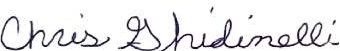 Chris Ghidinelli